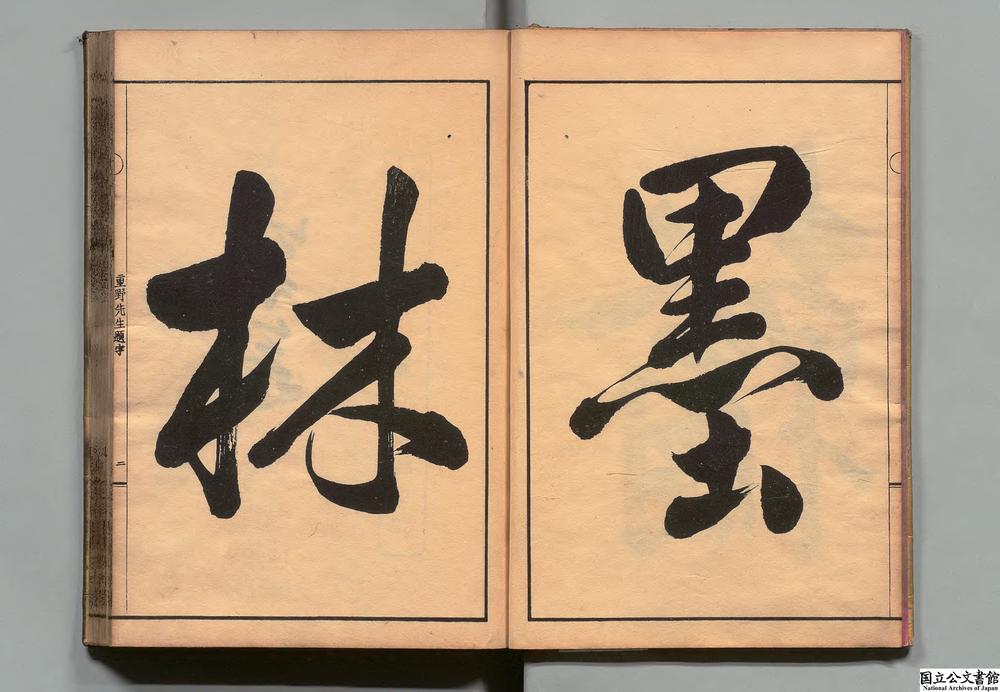 墨
林
重野先生題字
二
国立公文書館
National Archives of Japan